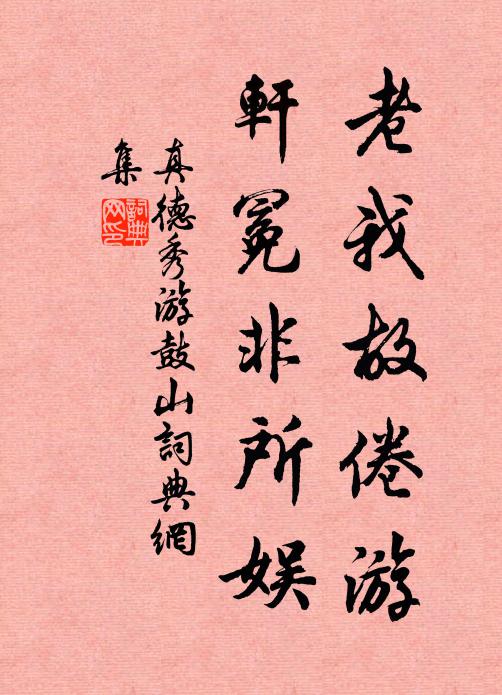 老我故倦游
軒冕非所娱
真德秀游鼓山詞典網
集
詞典网印